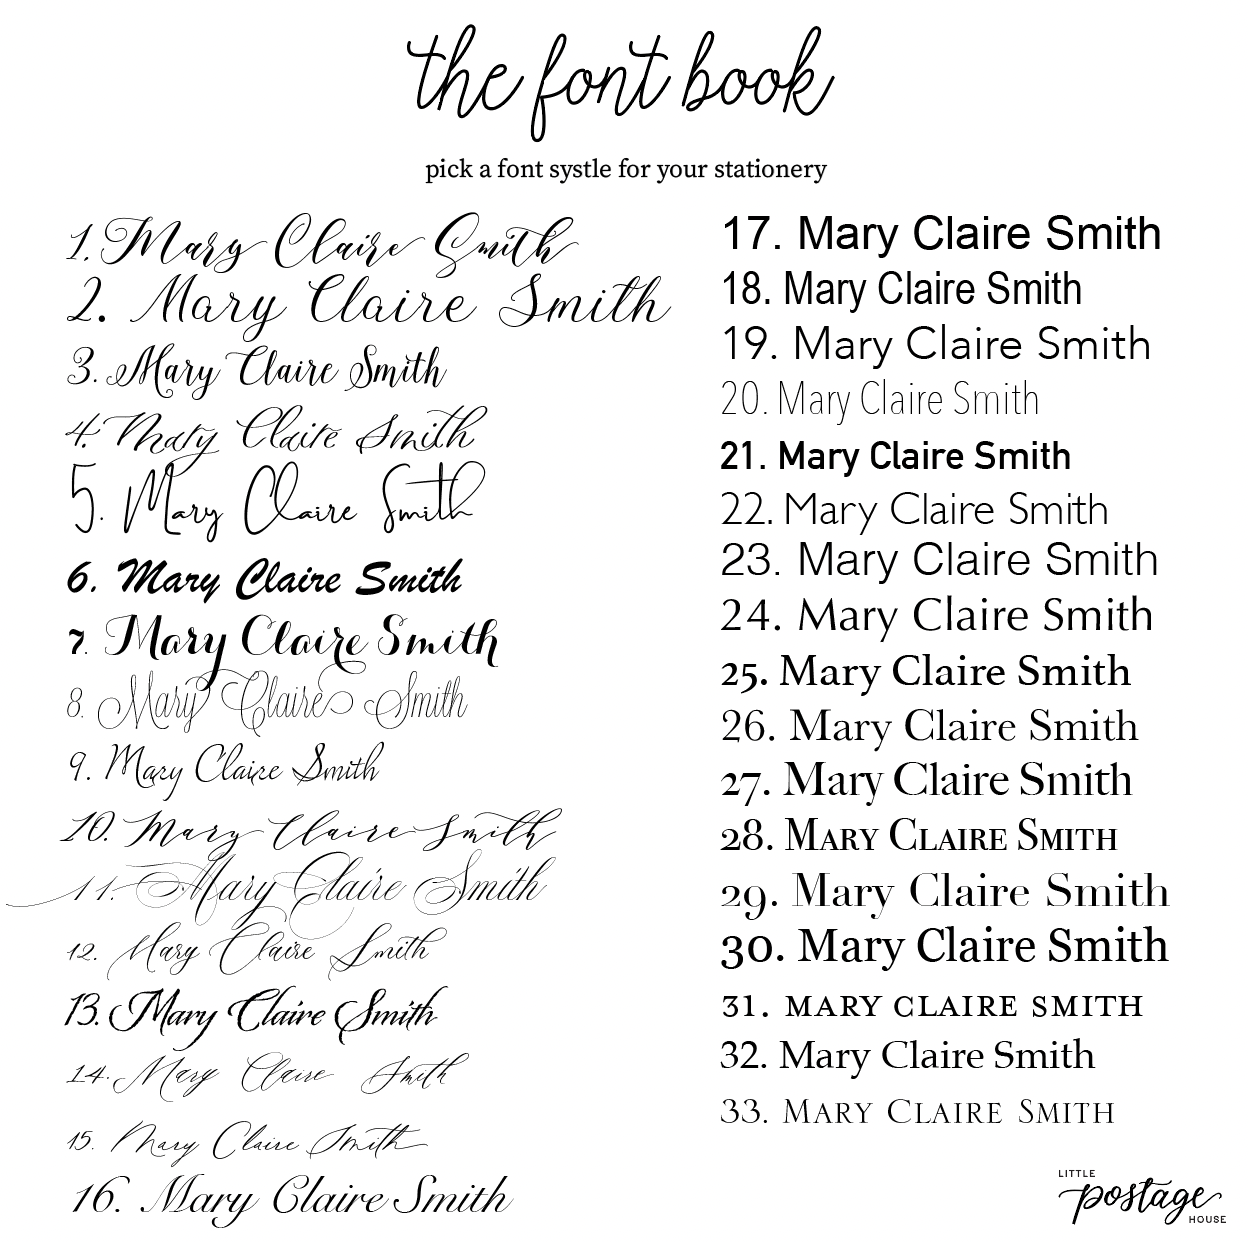 the font book
pick a font systle for your stationery
1. Mary Claire Smith
2. Mary Claire Smith
3. Mary Claire Smith
4. Mary Claire Smith
5. Mary Claire Smith
6. Mary Claire Smith
7. Mary Claire Smith
8. Mary Claire Smith
9. Mary Claire Smith
10. Mary Claire Smith
11. Mary Claire Smith
12. Mary Claire Smith
13. Mary Claire Smith
14. Mary Claire Smith
15. Mary Claire Smith
16. Mary Claire Smith
17. Mary Claire Smith
18. Mary Claire Smith
19. Mary Claire Smith
20. Mary Claire Smith
21. Mary Claire Smith
22. Mary Claire Smith
23. Mary Claire Smith
24. Mary Claire Smith
25. Mary Claire Smith
26. Mary Claire Smith
27. Mary Claire Smith
28. MARY CLAIRE SMITH
29. Mary Claire Smith
30. Mary Claire Smith
31. MARY CLAIRE SMITH
32. Mary Claire Smith
33. MARY CLAIRE SMITH
LITTLE
postage
HOUSE